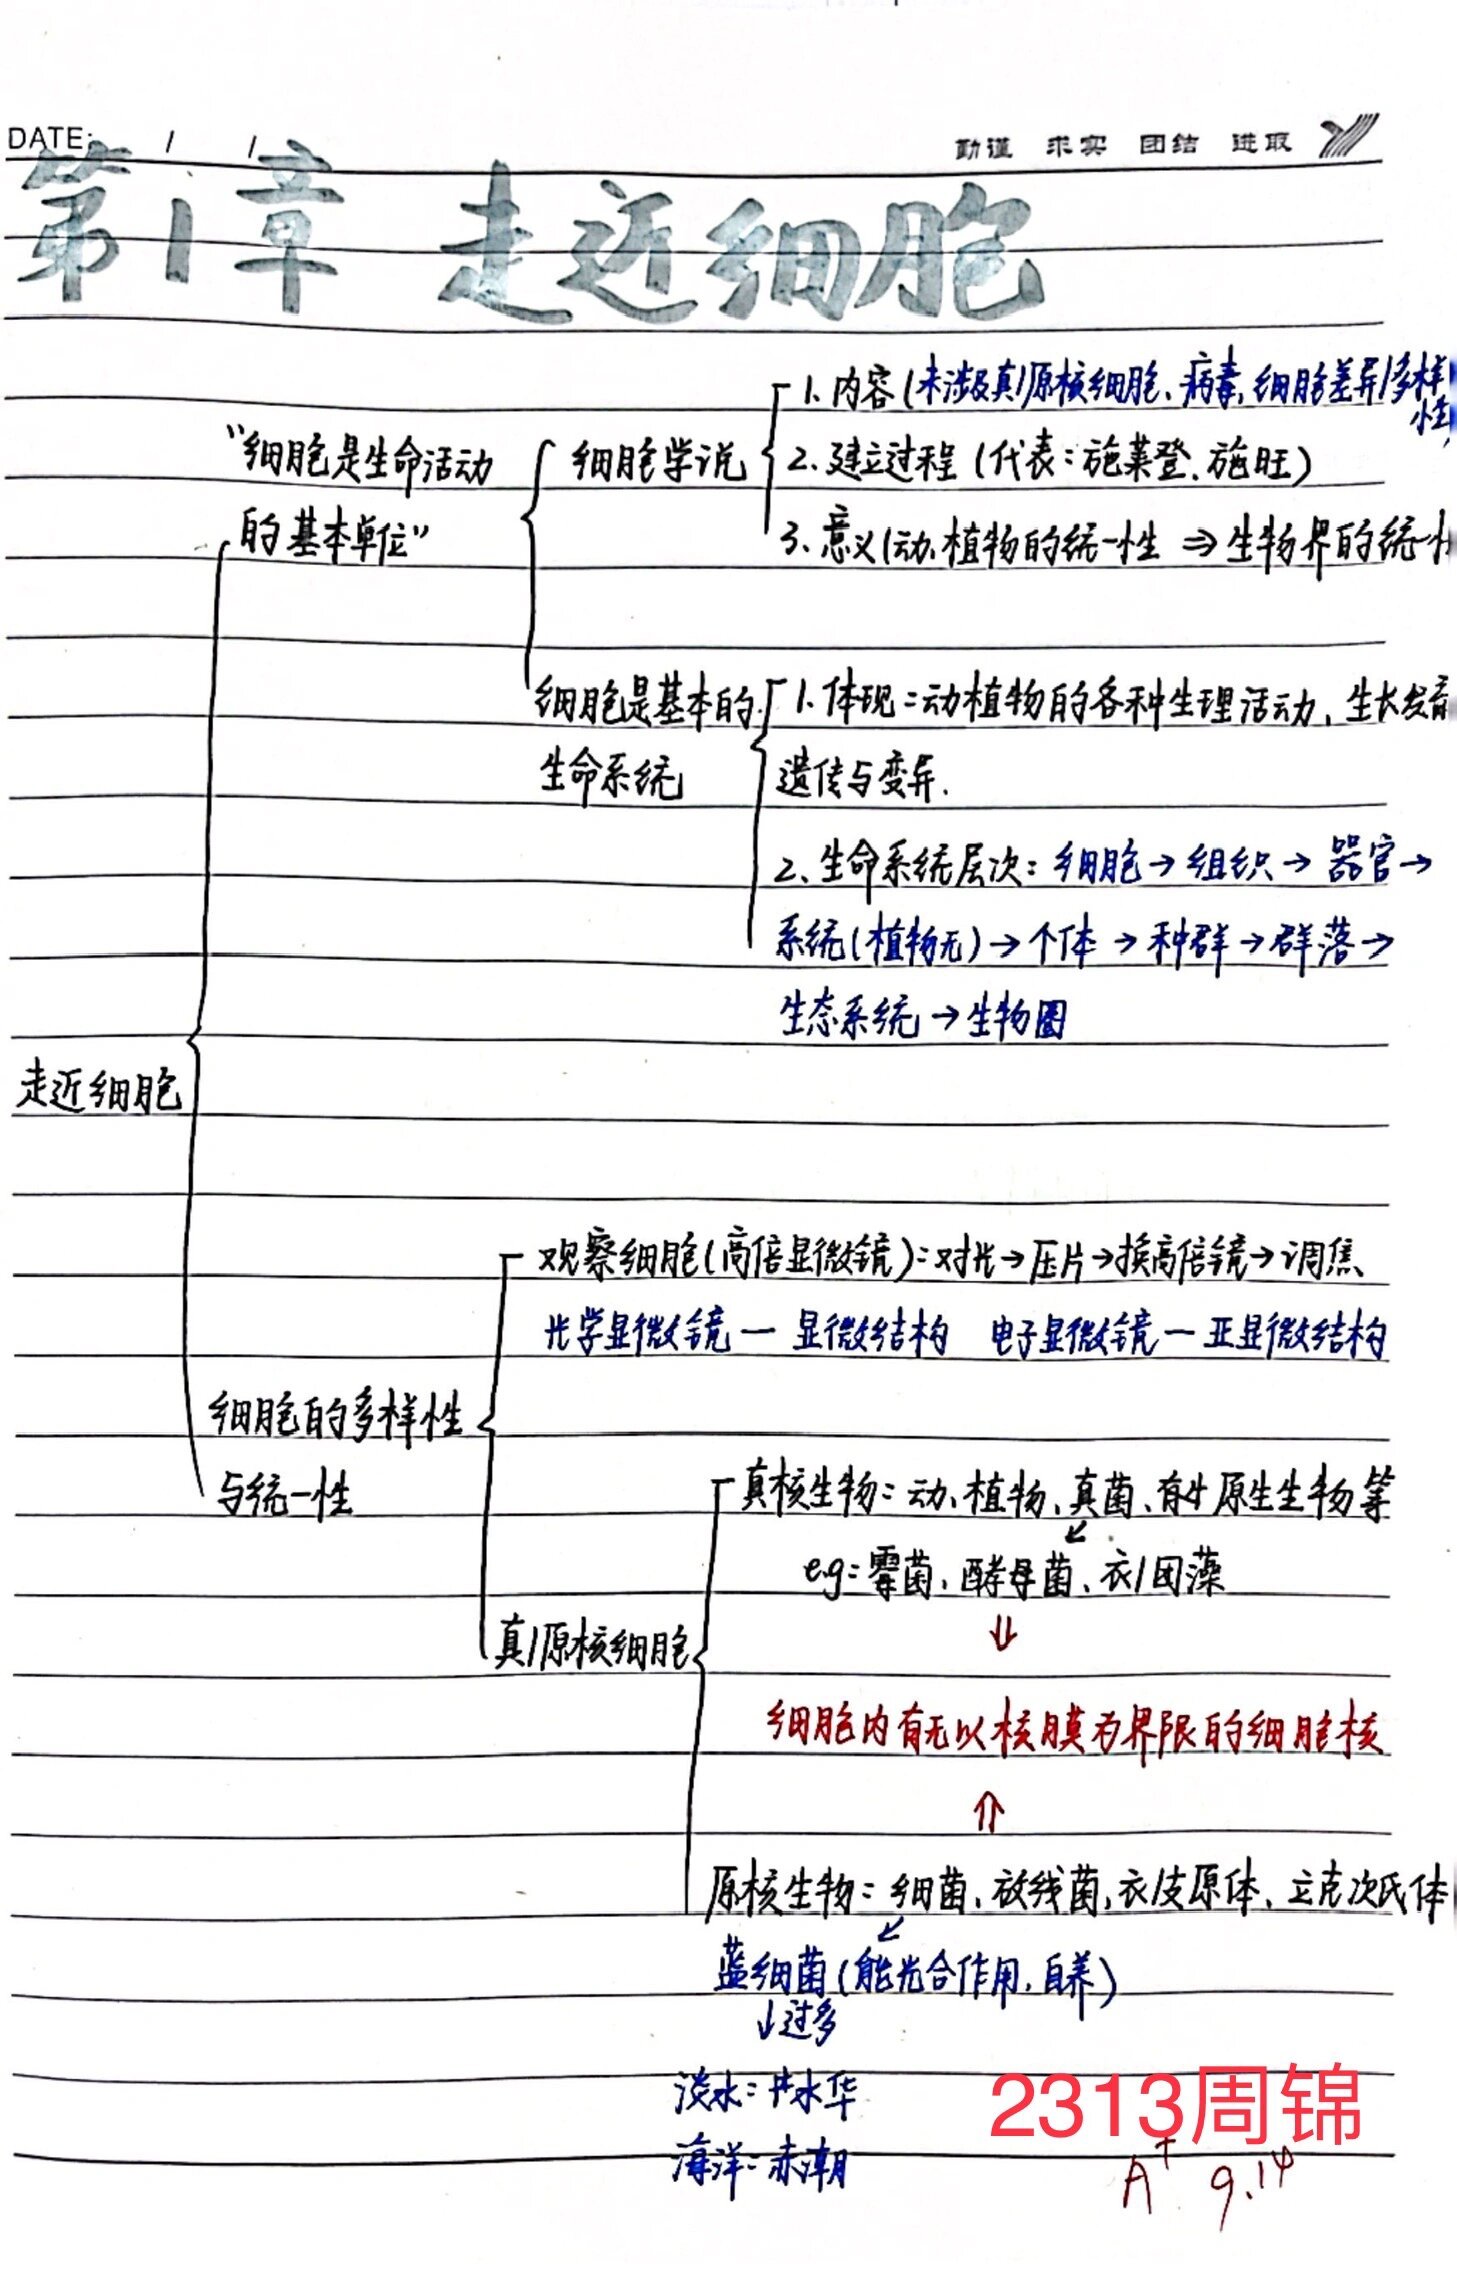 DATE: / /
勤谨 求实 团结 进取
第1章 走近细胞
1、内容(未涉及真/原核细胞、病毒,细胞差异/多样
性,
"细胞是生命活动
的基本单位"
细胞学说
2、建立过程(代表:施莱登、施旺)
3、意义(动、植物的统一性 ⇒ 生物界的统一
细胞是基本的
生命系统
1、体现:动植物的各种生理活动、生长发育
遗传与变异.
2、生命系统层次:细胞→组织→器官→
系统(植物无)→个体→种群→群落→
生态系统→生物圈
走近细胞
观察细胞(高倍显微镜):对光→压片→换高倍镜→调焦
光学显微镜—显微结构 电子显微镜—亚显微结构
细胞的多样性
与统一性
真核生物:动、植物、真菌、 原生生物等
e.g:霉菌、酵母菌、衣/团藻
⇓
真/原核细胞
细胞内有无以核膜为界限的细胞核
⇑
原核生物:细菌、放线菌,衣/支原体、立克次氏体
↙
蓝细菌(能光合作用,自养)
↓过多
淡水: 水华
海洋:赤潮
2313周锦
A+ 9.14